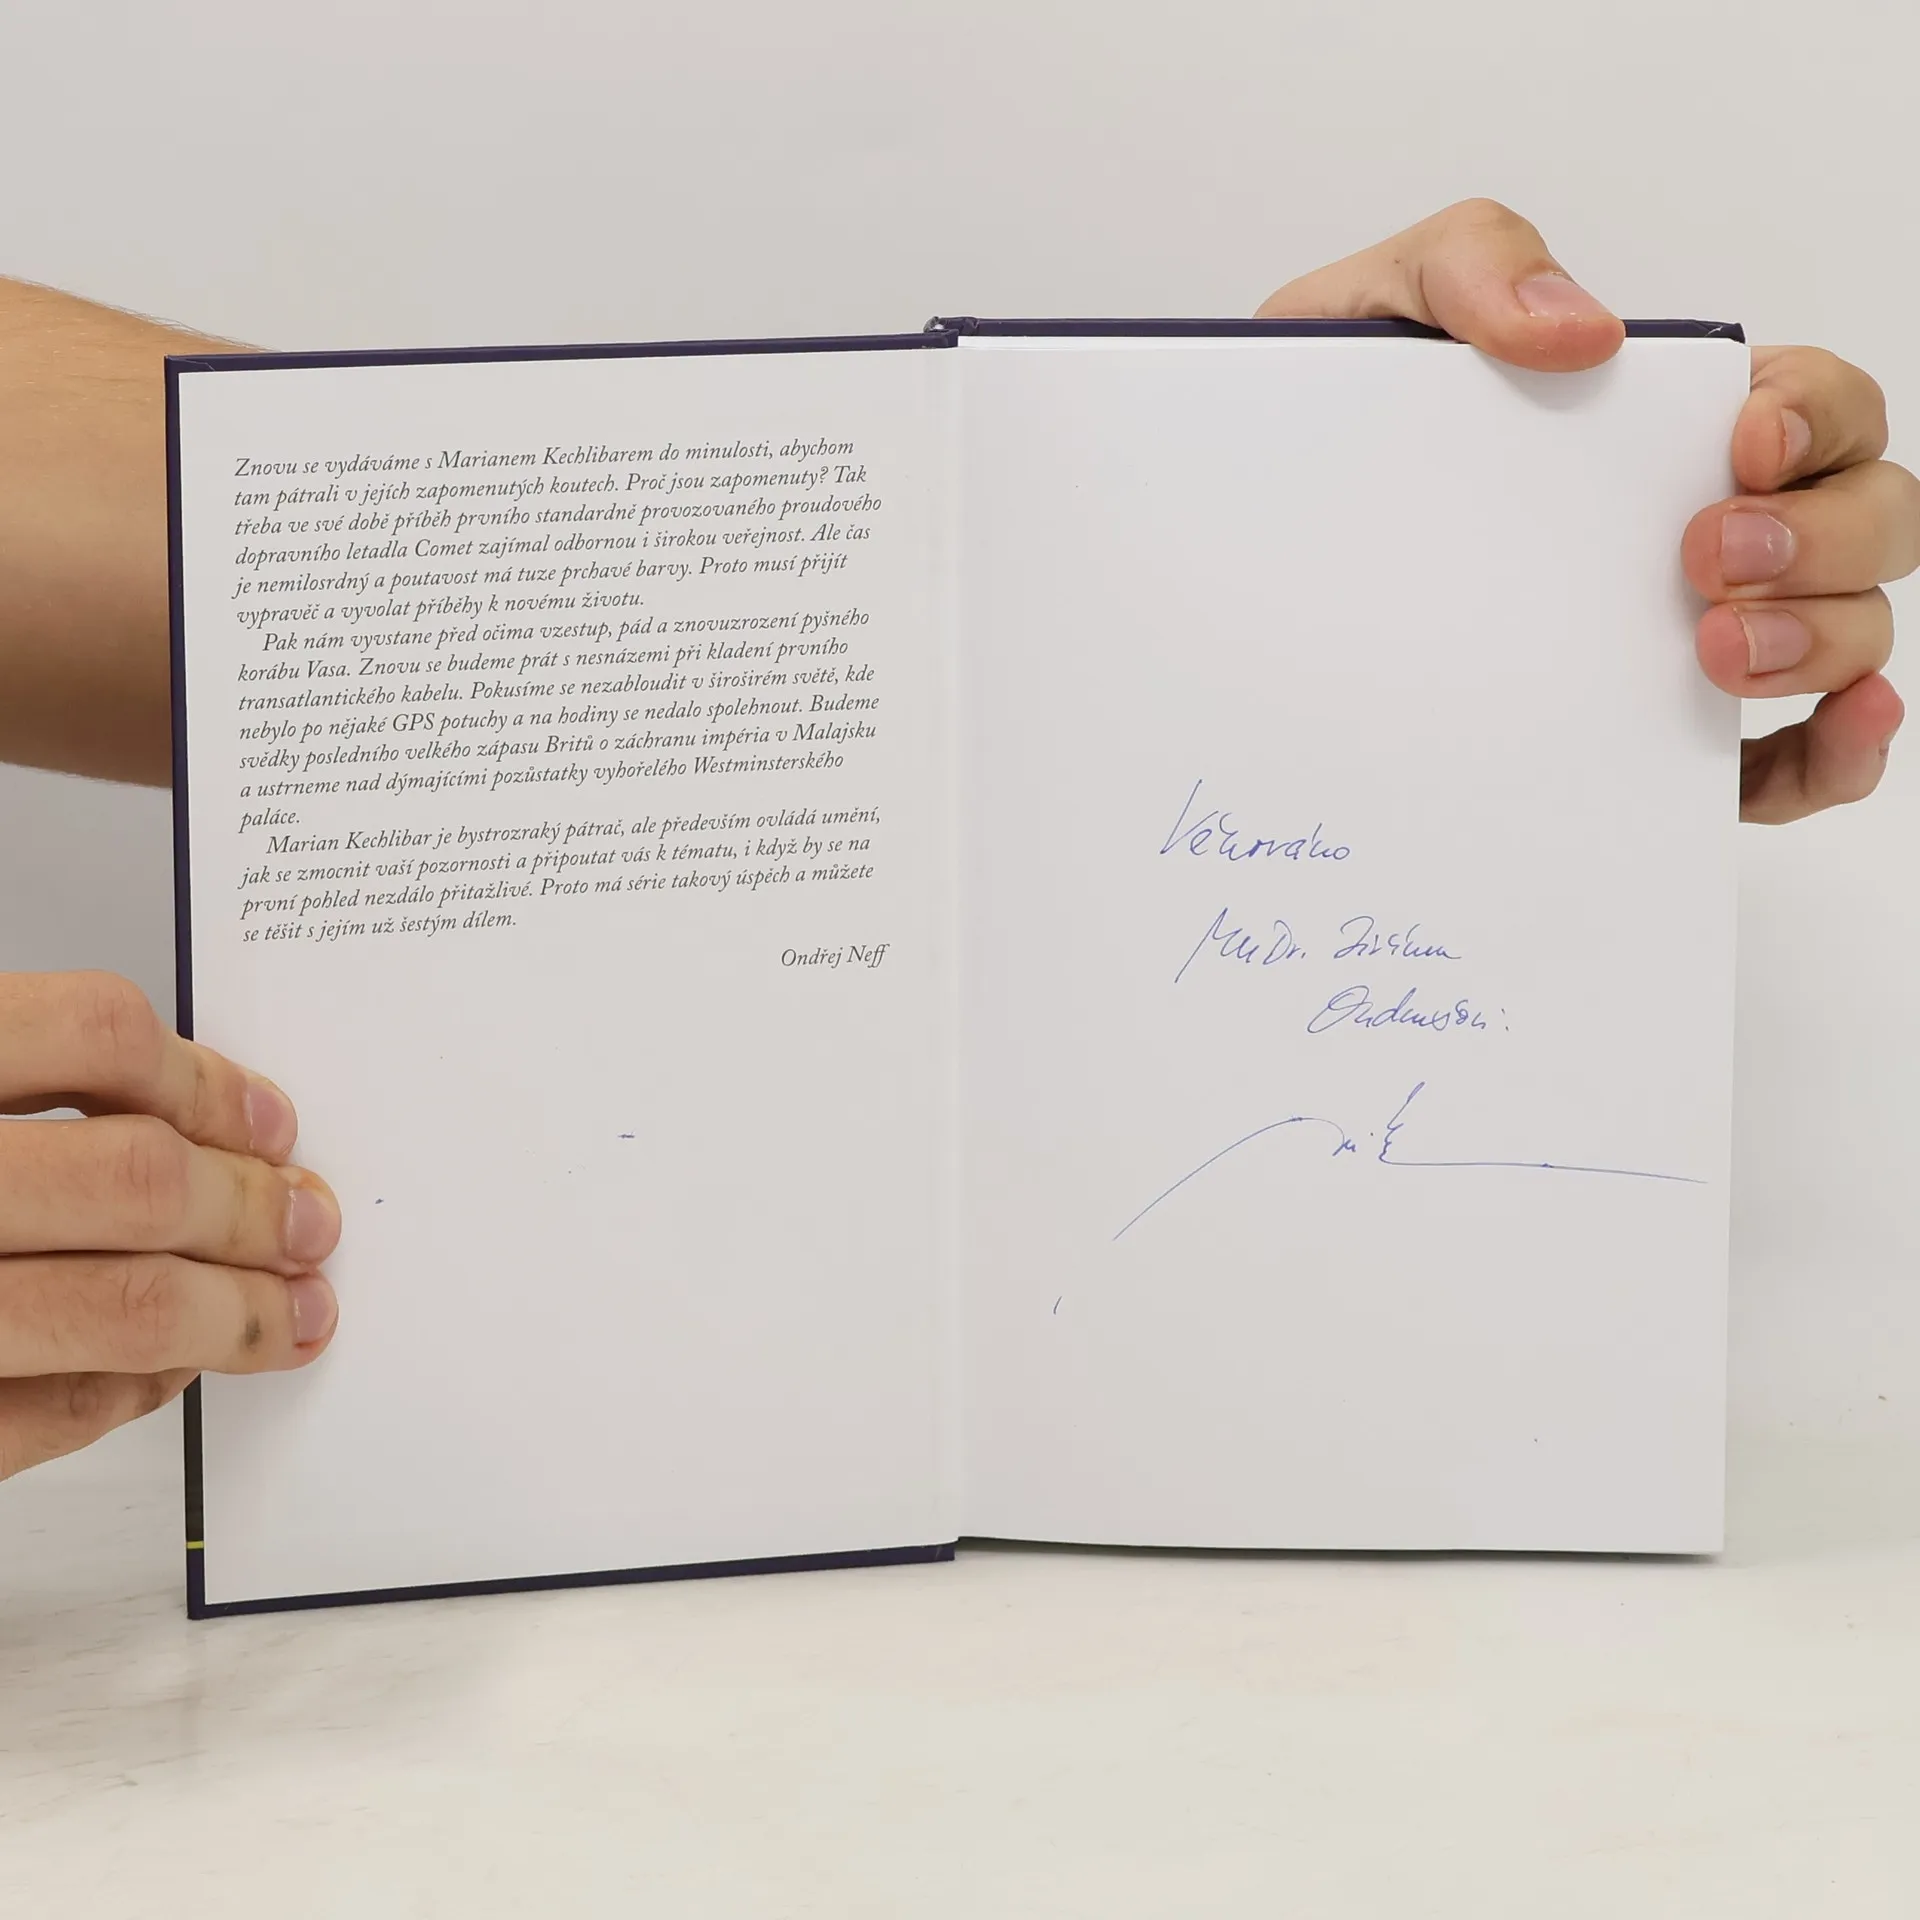 Znovu se vydáváme s Marianem Kechlibarem do minulosti, abychom
tam pátrali v jejích zapomenutých koutech. Proč jsou zapomenuty? Tak
třeba ve své době příběh prvního standardně provozovaného proudového
dopravního letadla Comet zajímal odbornou i širokou veřejnost. Ale čas
je nemilosrdný a poutavost má tuze prchavé barvy. Proto musí přijít
vypravěč a vyvolat příběhy k novému životu.
Pak nám vyvstane před očima vzestup, pád a znovuzrození pyšného
korábu Vasa. Znovu se budeme prát s nesnázemi při kladení prvního
transatlantického kabelu. Pokusíme se nezabloudit v široširém světě, kde
nebylo po nějaké GPS potuchy a na hodiny se nedalo spolehnout. Budeme
svědky posledního velkého zápasu Britů o záchranu impéria v Malajsku
a ustrneme nad dýmajícími pozůstatky vyhořelého Westminsterského
paláce.
Marian Kechlibar je bystrozraký pátrač, ale především ovládá umění,
jak se zmocnit vaší pozornosti a připoutat vás k tématu, i když by se na
první pohled nezdálo přitažlivé. Proto má série takový úspěch a můžete
se těšit s jejím už šestým dílem.
Ondřej Neff
Věnováno
MUDr.